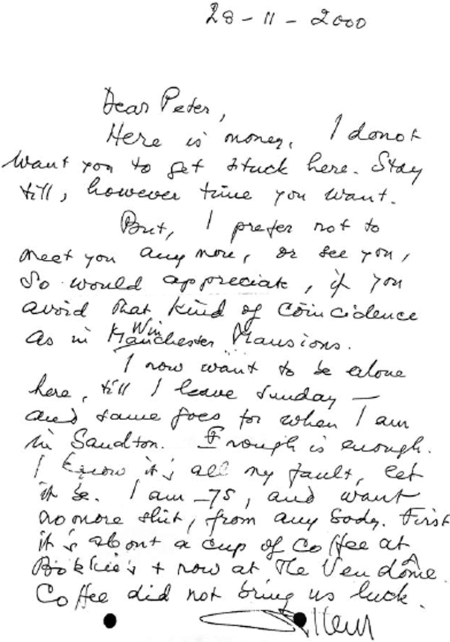 28-11-2000
Dear Peter,
Here is money. I donot
want you to get stuck here. Stay
till, however time you want.
But, I prefer not to
meet you any more, or see you,
So would appreciate, if you
avoid that kind of coincidence
as in Winchester Mansions.
I now want to be alone
here, till I leave sunday —
and same goes for when I am
in Sandton. Enough is enough.
I know it's all my fault, let
it be. I am 75, and want
no more shit, from any body. First
it's about a cup of Coffee at
Bookies + now at The Vendôme.
Coffee did not bring us luck.